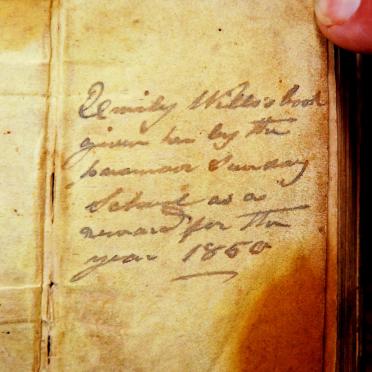 Emily Wills's book
given her by the
paramoor Sunday
School as a
reward for the
year 1850